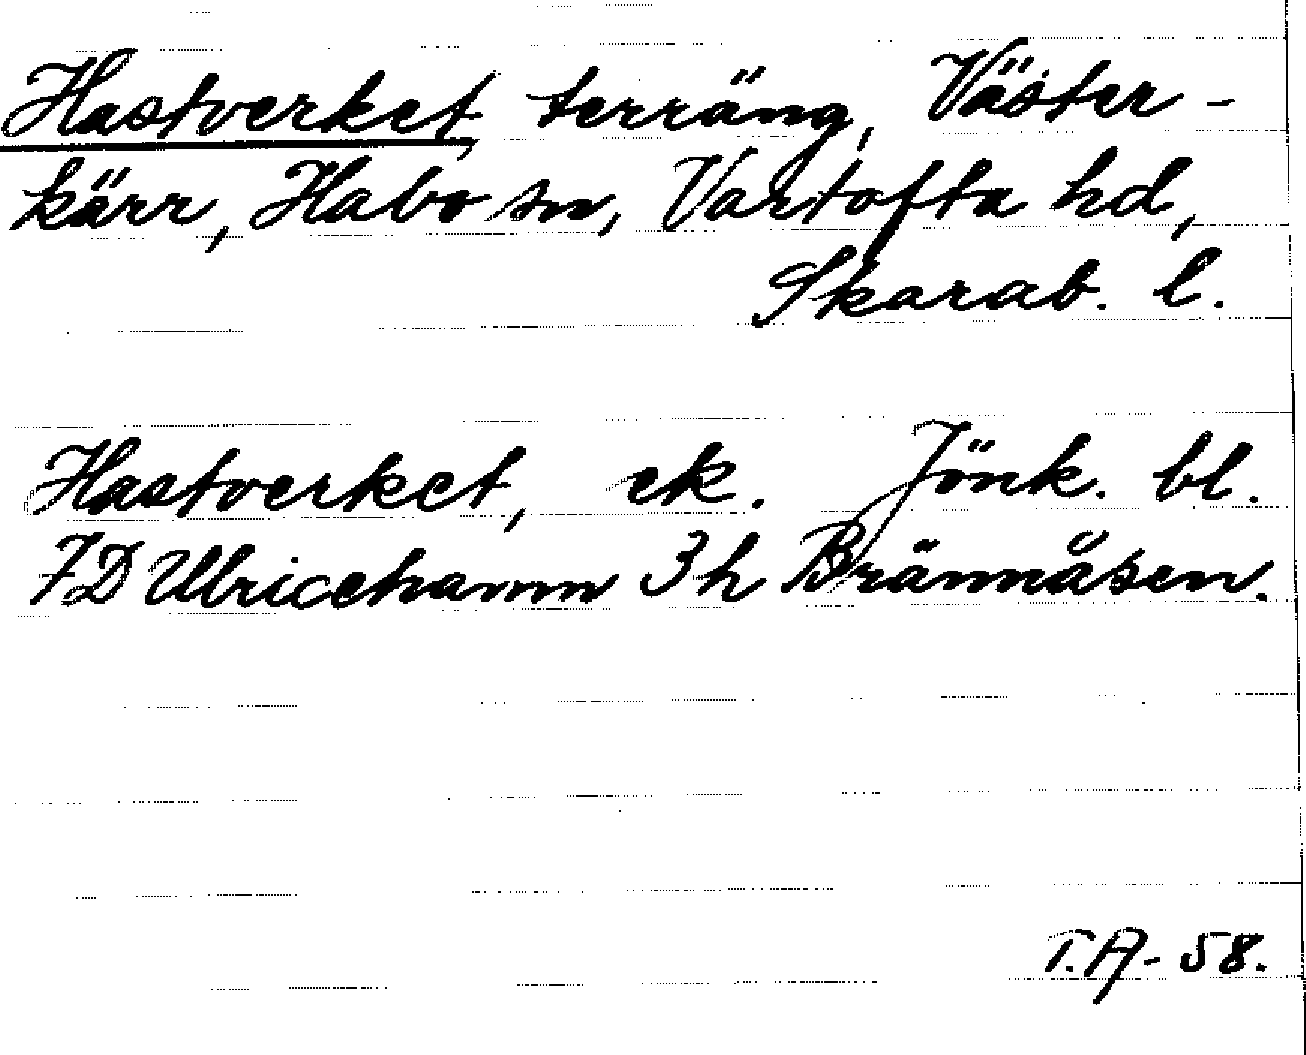 Hastverket, terräng, Väster-
kärr, Habo sn, Vartofta hd,
Skarab. l.
Hastverket, ek. Jönk. bl.
7D Ulricehamn 3h Brännåsen.
T.A-58.